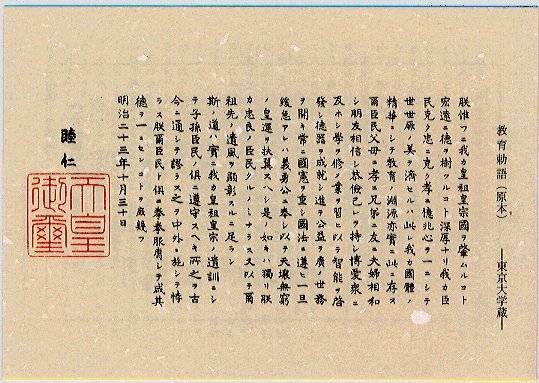 教育勅語(原本)
―東京大学蔵―
朕惟フニ我カ皇祖皇宗國ヲ肇ムルコト
宏遠ニ德ヲ樹ツルコト深厚ナリ我カ臣
民克ク忠ニ克ク孝ニ億兆心ヲ一ニシテ
世世厥ノ美ヲ濟セルハ此レ我カ國體ノ
精華ニシテ教育ノ淵源亦實ニ此ニ存ス
爾臣民父母ニ孝ニ兄弟ニ友ニ夫婦相和
シ朋友相信シ恭儉己レヲ持シ博愛衆ニ
及ホシ學ヲ修メ業ヲ習ヒ以テ智能ヲ啓
發シ德器ヲ成就シ進テ公益ヲ廣メ世務
ヲ開キ常ニ國憲ヲ重シ國法ニ遵ヒ一旦
緩急アレハ義勇公ニ奉シ以テ天壤無窮
ノ皇運ヲ扶翼スヘシ是ノ如キハ獨リ朕
カ忠良ノ臣民タルノミナラス又以テ爾
祖先ノ遺風ヲ顯彰スルニ足ラン
斯ノ道ハ實ニ我カ皇祖皇宗ノ遺訓ニシ
テ子孫臣民ノ俱ニ遵守スヘキ所之ヲ古
今ニ通シテ謬ラス之ヲ中外ニ施シテ悖
ラス朕爾臣民ト俱ニ拳拳服膺シテ咸其
德ヲ一ニセンコトヲ庶幾フ
明治二十三年十月三十日
睦仁
天皇
御璽